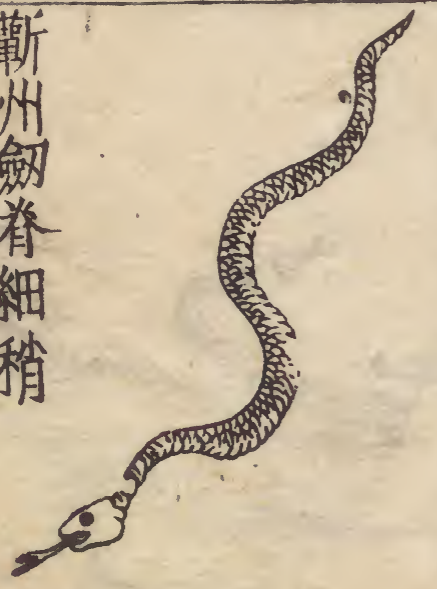 蘄州劒脊細稍